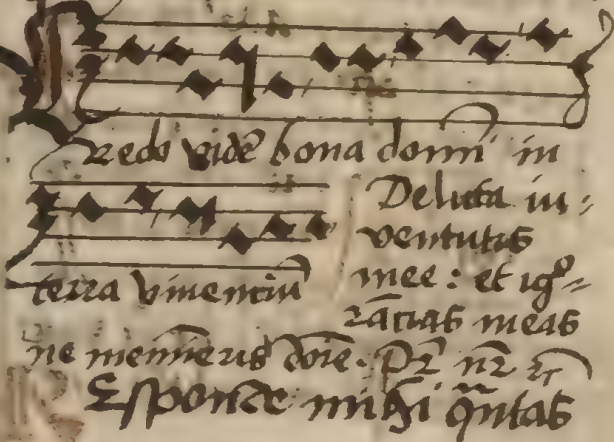 Credo vidē bona domī in
terra viventiū
Delicta iu⸗
ventutis
mee : et igº⸗
rātias meas
ne memīeris dōīe . Pr̄ nr̄
Esponde mihi qͣntas